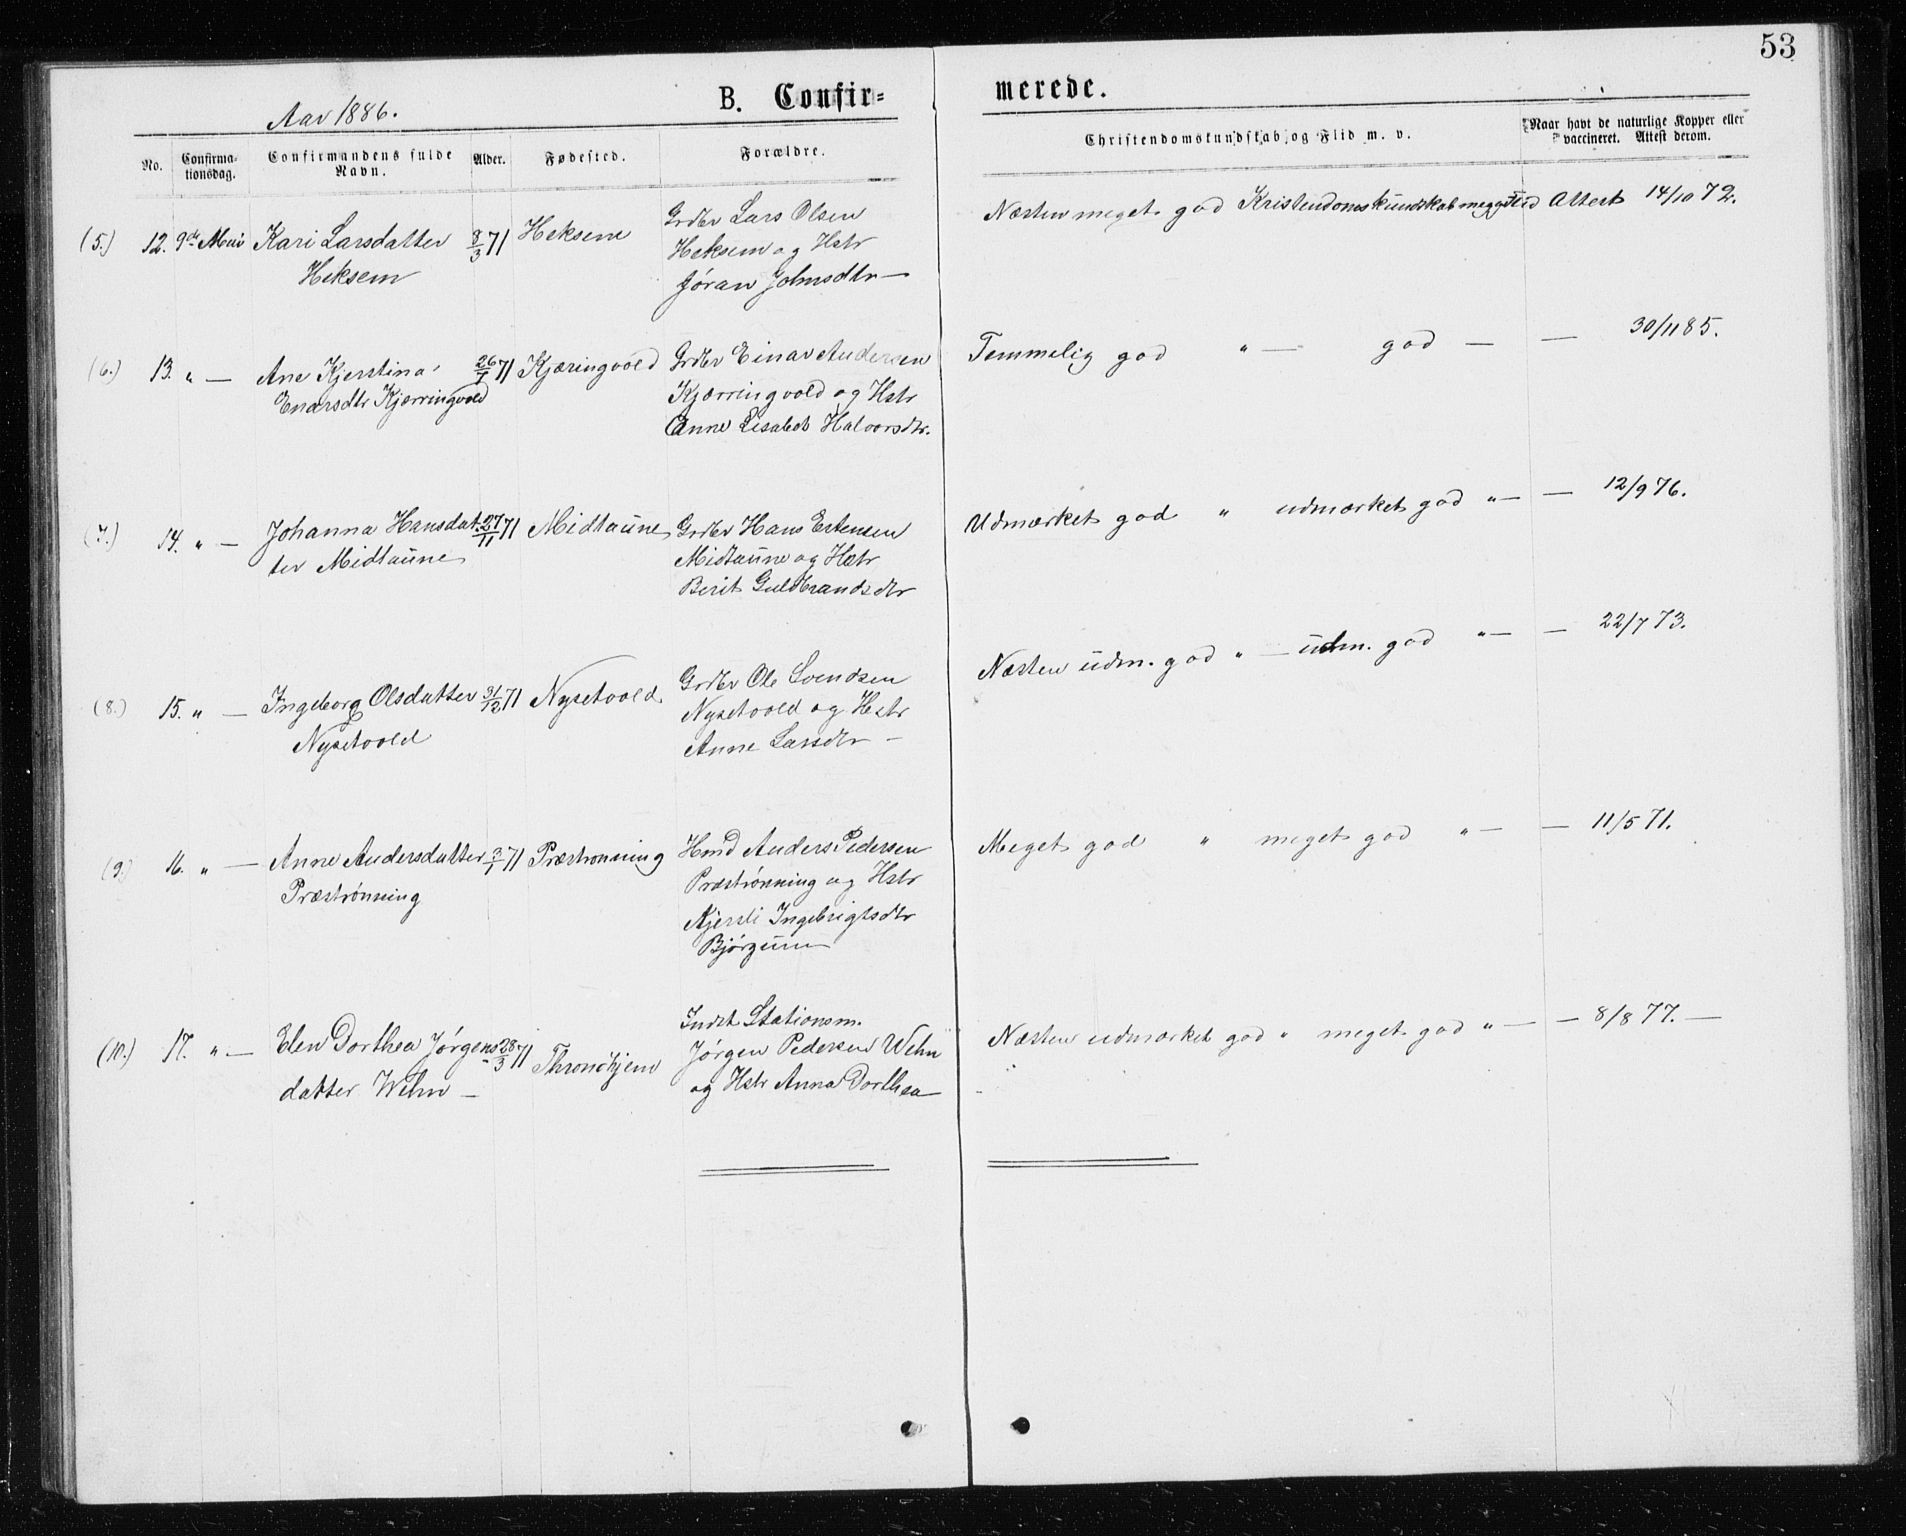 53
Aar 1886.
B. Confir=
merede.
No.
Confirma-
tionsdag.
Confirmandens fulde
Navn.
Alder.
Fødested.
Forældre.
Christendomskundskab og Flid m. v.
Naar havt de naturlige Kopper eller
vaccineret. Attest derom.
(5.) 12. 9de Mai Kari Larsdatter 8/3 71 Heksem Grdbr Lars Olsen Næsten meget god Kristendomskundskab meg god Flid Attest 14/10 72.
Heksem Heksem og Hstr
Jóran Johnsdtr —
(6.) 13. " — Ane Kjerstina 26/7 71 Kjæringvold Grdbr Einar Andersen Temmelig god " — god — — 30/11 85.
Enarsdtr Kjærringvold Kjærringvold og Hstr
Anne Lisabet Halvorsdtr.
(7.) 14. " — Johanna Hansdat- 27/11 71 Midtaune Grdbr Hans Estensen Udmærket god " udmærket god " — — 12/9 76.
ter Midtaune Midtaune og Hstr
Berit Guldbrandsdtr
(8.) 15. " — Ingeborg Olsdatter 31/12 71 Nysetvold Grdbr Ole Svendsen Næsten udm. god " — udm. god " — — 22/7 73.
Nysetvold Nysetvold og Hstr
Anne Larsdtr —
(9.) 16. " — Anne Andersdatter 3/1 71 Præstrønning Hmd Anders Pedersen Meget god " meget god " — — 11/5 71.
Præstrónning Præstrónning og Hstr
Kjersti Ingebrigtsdtr
Bjórgum
(10.) 17. " — Elen Dorthea Jórgens- 28/3 71 Throndhjem Indst. Stationsm. Næsten udmærket god " meget god " — — 8/8 77. —
datter Wehn — Jørgen Pedersen Wehn
og Hstr Anna Dorthea —